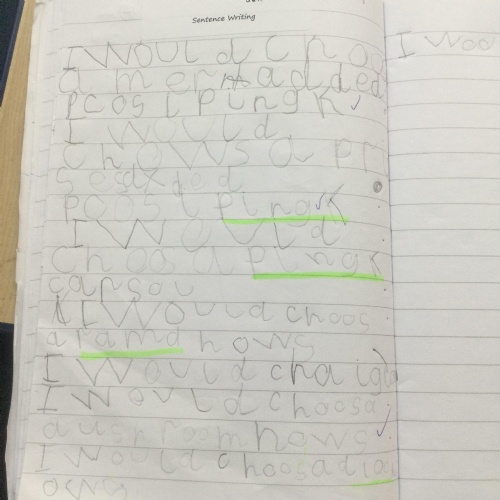 Sentence Writing
I Would choo
a mermadded
pcost pingk
I would
chowsapri
sesdxded
poost pingk
I Would
Choo a pingk
carsou
I Would choos
a land hows
I Would chaig
I would choosa
aushroomhows
I Would choosadia
ows
I woo